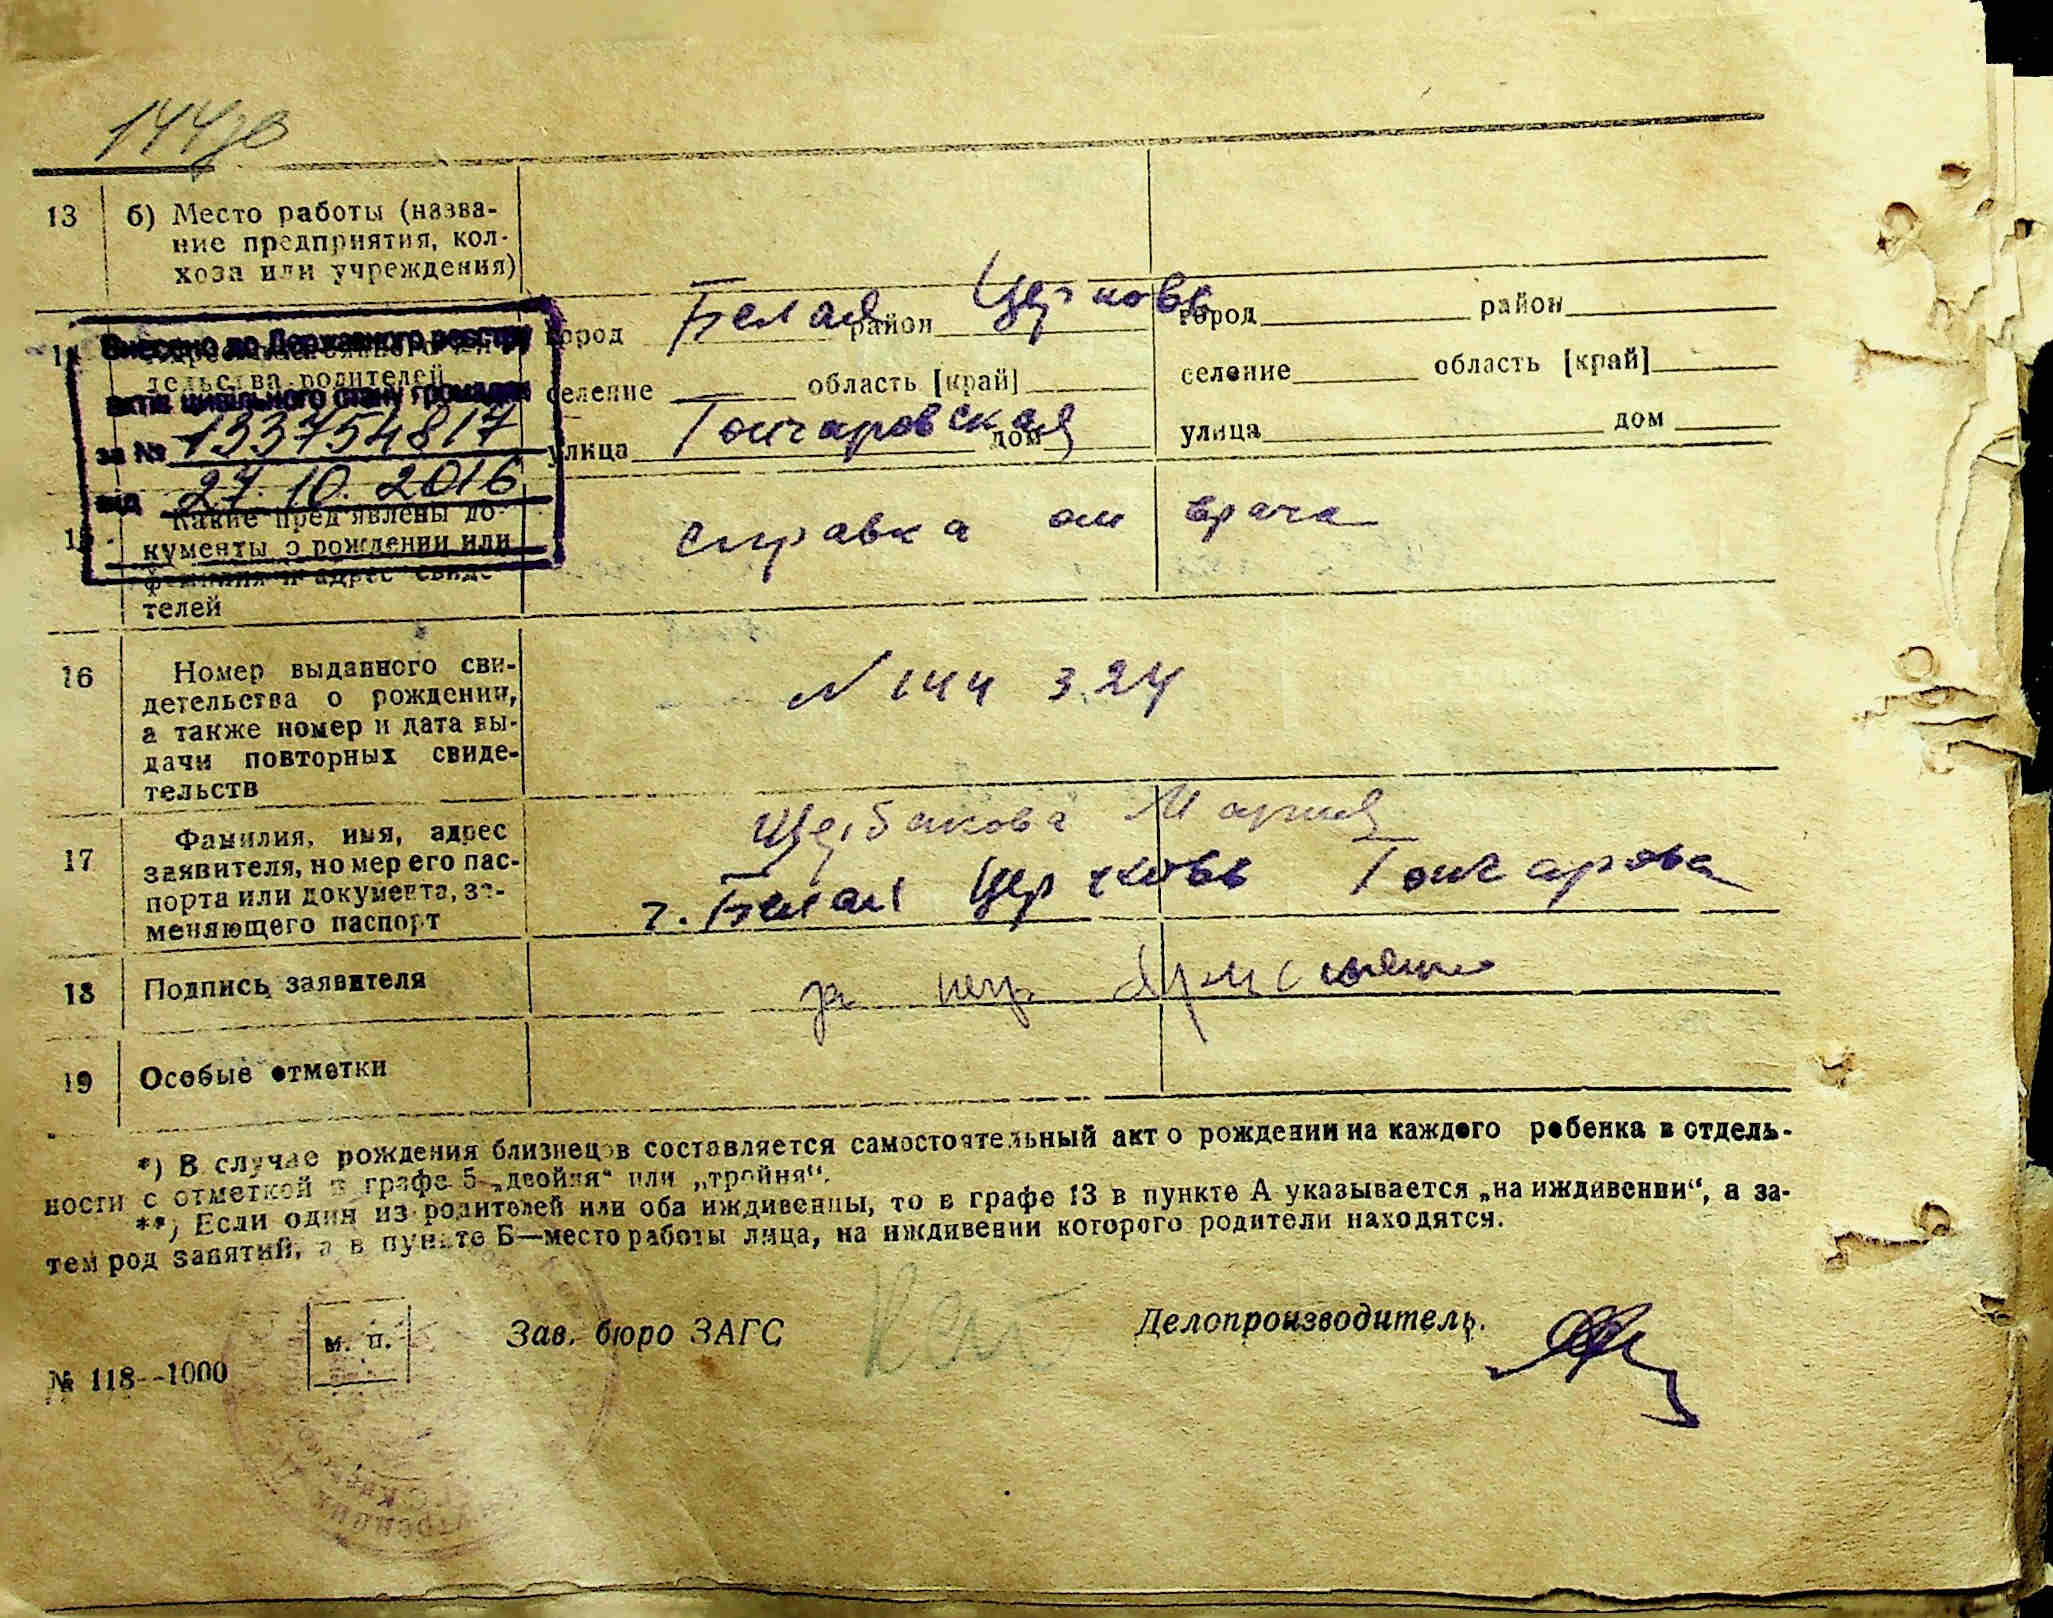 144
13
б) Место работы (назва-
ние предприятия, кол-
хоза или учреждения)
Внесено до Державного реєстру
актів цивільного стану громадян
за № 133754817
від 27.10.2016
14
тельства родителей
город Белая Церковь район
селение область [край]
улица Гончаровская дом
город район
селение область [край]
улица дом
15
Какие пред'явлены до-
кументы о рождении или
фамилия и адрес свиде-
телей
справка от врача
16
Номер выданного сви-
детельства о рождении,
а также номер и дата вы-
дачи повторных свиде-
тельств
N 144 324
17
Фамилия, имя, адрес
заявителя, номер его пас-
порта или документа, за-
меняющего паспорт
Щербакова Мария
г. Белая Церковь Гончарова
18
Подпись заявителя
за нег.
19
Особые отметки
*) В случае рождения близнецов составляется самостоятельный акт о рождении на каждого ребенка в отдель-
ности с отметкой в графе 5 „двойня“ или „тройня“.
**) Если один из родителей или оба иждивенцы, то в графе 13 в пункте А указывается „на иждивении“, а за-
тем род занятий, а в пункте Б—место работы лица, на иждивении которого родители находятся.
м. п.
Зав. бюро ЗАГС
Делопроизводитель.
№ 118--1000